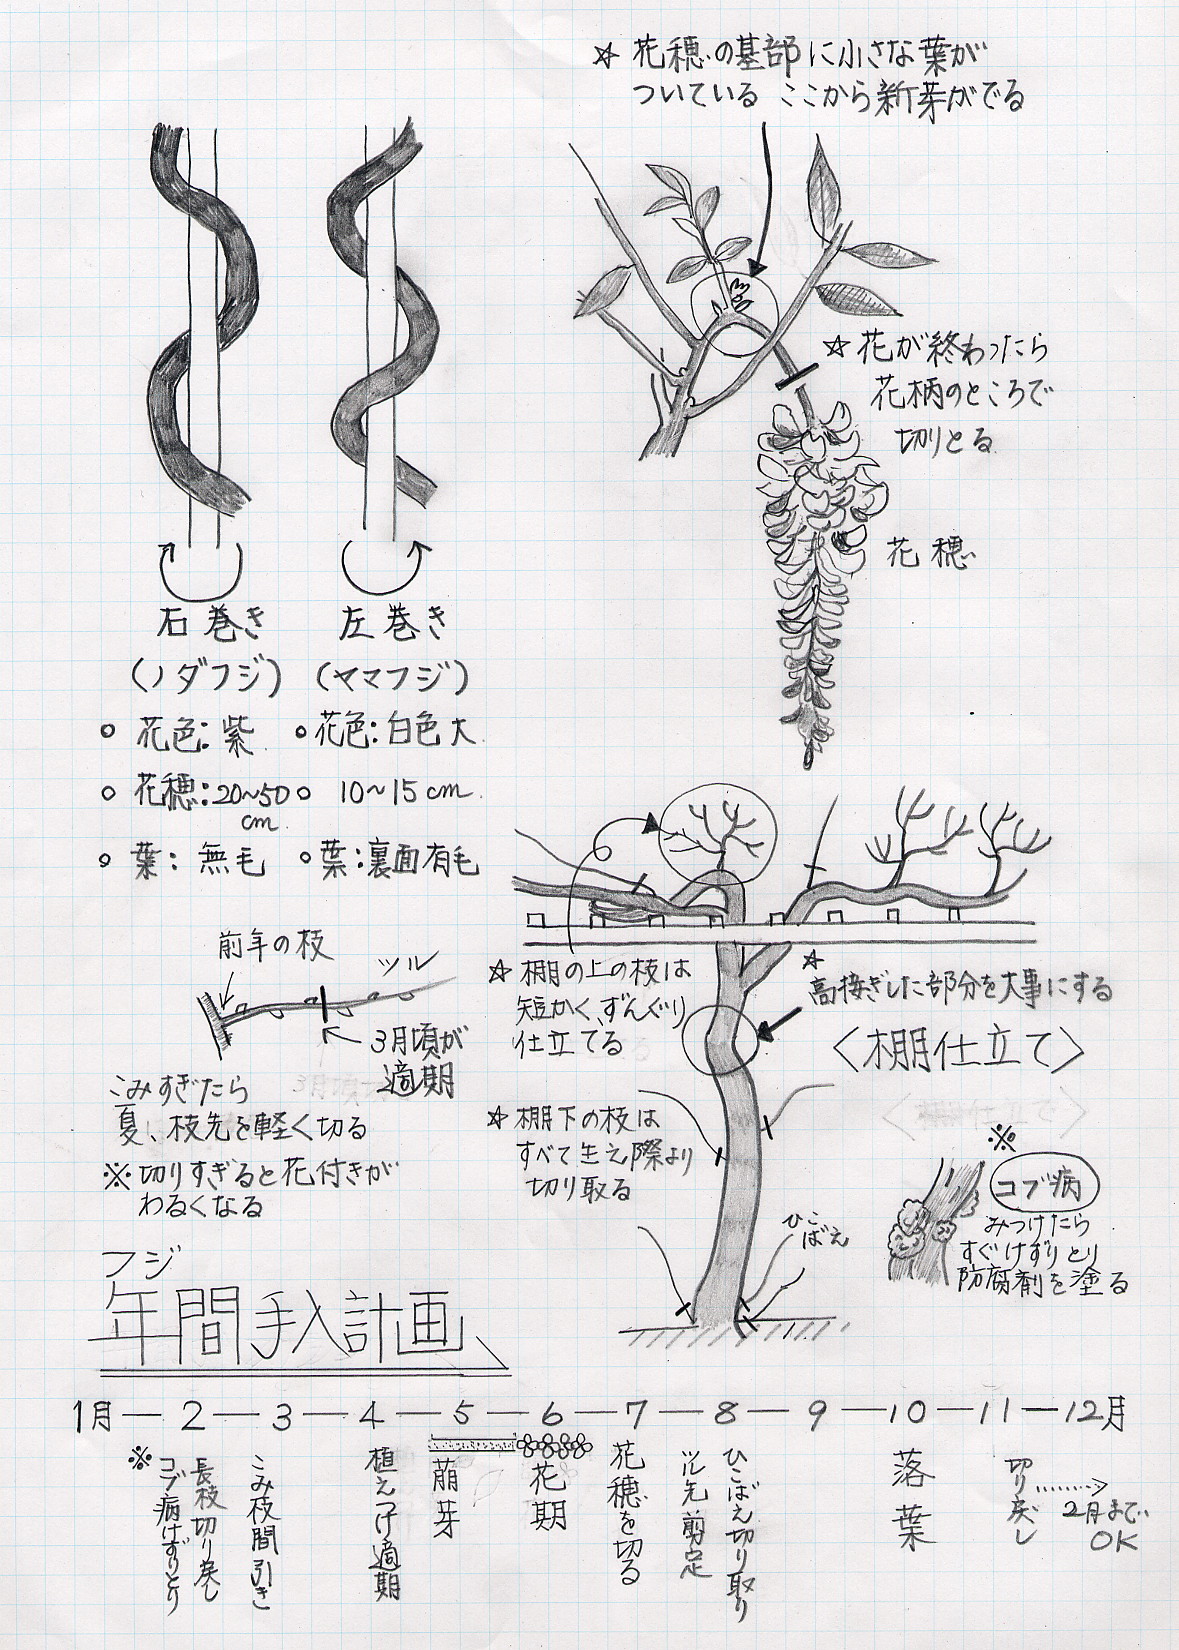 ☆ 花穂の基部に小さな葉が
ついている ここから新芽がでる
☆ 花が終わったら
花柄のところで
切りとる
花穂
右巻き
(ノダフジ)
○ 花色:紫
○ 花穂:20〜50
cm
○ 葉:無毛
左巻き
(ヤマフジ)
○花色:白色大
○ 10〜15cm
○葉:裏面有毛
前年の枝
ツル
3月頃が
適期
こみすぎたら
夏、枝先を軽く切る
※切りすぎると花付きが
わるくなる
☆ 棚の上の枝は
短かく、ずんぐり
仕立てる
☆
高接ぎした部分を大事にする
<棚仕立て>
☆ 棚下の枝は
すべて生え際より
切り取る
ひこ
ばえ
※
コブ病
みつけたら
すぐけずりとり
防腐剤を塗る
フジ
年間手入計画
1月ー2ー3ー4ー5ー6ー7ー8ー9ー10ー11ー12月
※コブ病けずりとり
長枝切り戻し
こみ枝間引き
植えつけ適期
萠芽
花期
花穂を切る
ツル先剪定
ひこばえ切り取り
落葉
切り戻し
2月まで
OK